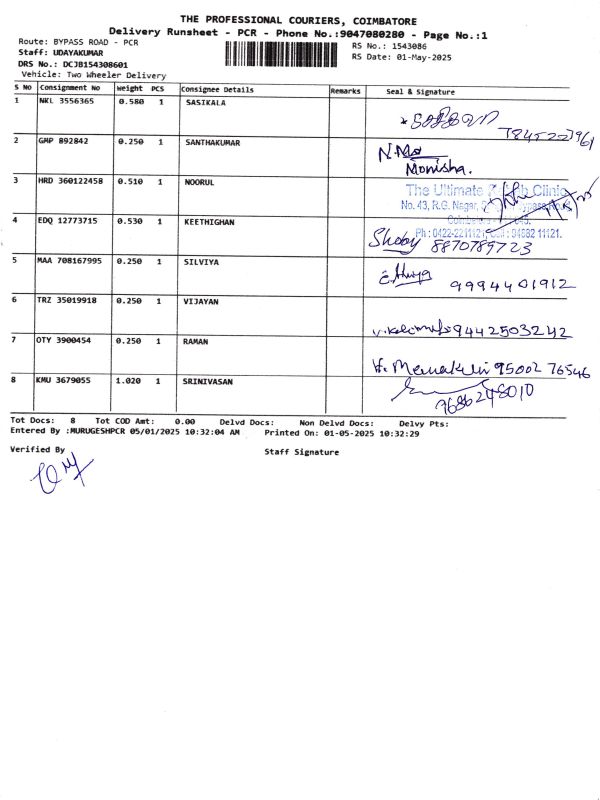 THE PROFESSIONAL COURIERS, COIMBATORE
Delivery Runsheet - PCR - Phone No.:9047080280 - Page No.:1
Route: BYPASS ROAD - PCR
RS No.: 1543086
Staff: UDAYAKUMAR
RS Date: 01-May-2025
DRS No.: DCJB154308601
Vehicle: Two Wheeler Delivery
S No Consignment No Weight PCS Consignee Details Remarks Seal & Signature
1 NKL 3556365 0.580 1 SASIKALA
2 GMP 892842 0.250 1 SANTHAKUMAR
Monisha.
3 HRD 360122458 0.510 1 NOORUL
The Ultimate Clinic
No. 43, R.G. Nagar,
4 EDQ 12773715 0.530 1 KEETHIGHAN
8870789723
5 MAA 708167995 0.250 1 SILVIYA
9994401912
6 TRZ 35019918 0.250 1 VIJAYAN
9442503242
7 OTY 3900454 0.250 1 RAMAN
95002 76546
8 KMU 3679055 1.020 1 SRINIVASAN
Tot Docs: 8 Tot COD Amt: 0.00 Delvd Docs: Non Delvd Docs: Delvy Pts:
Entered By :MURUGESHPCR 05/01/2025 10:32:04 AM Printed On: 01-05-2025 10:32:29
Verified By Staff Signature